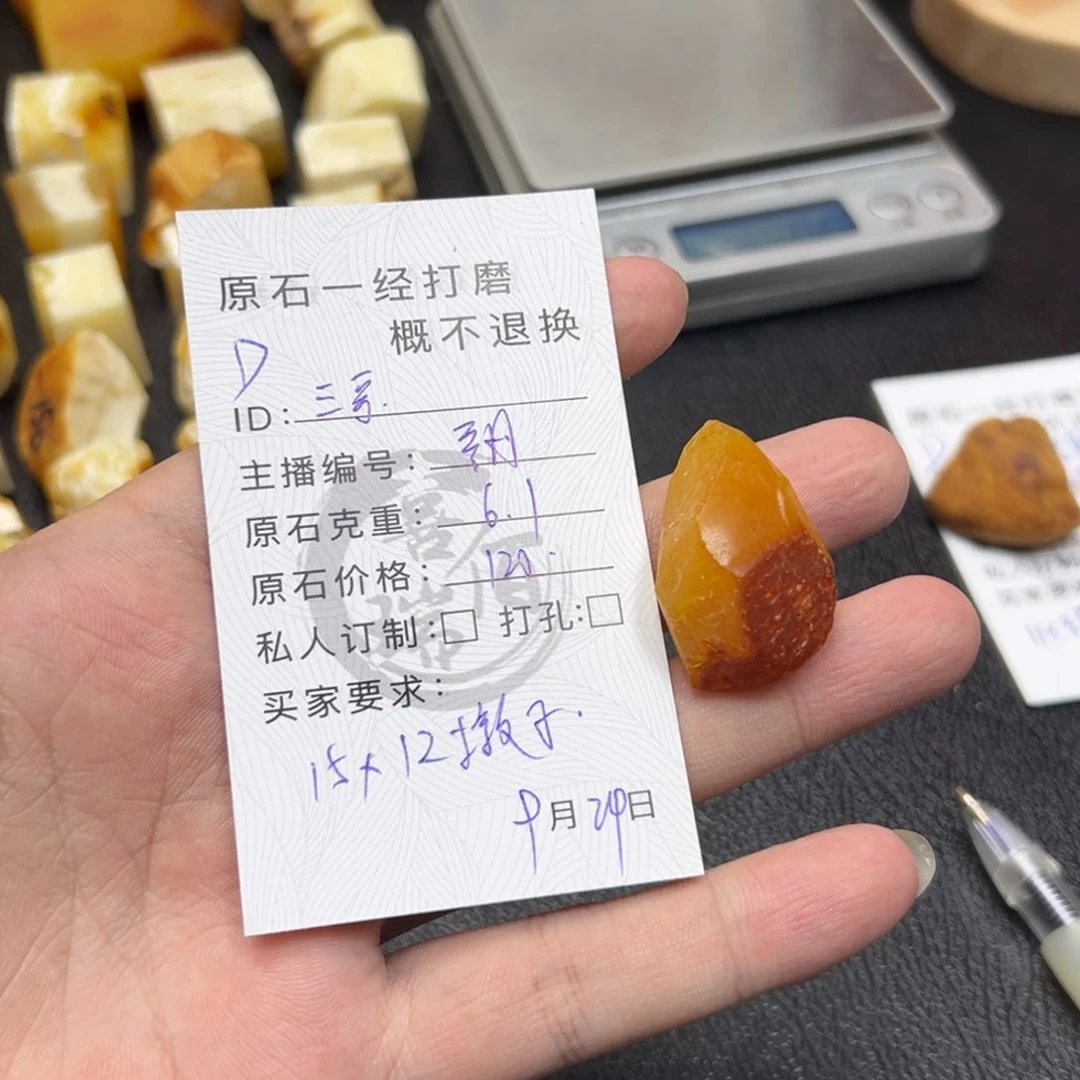 原石一经打磨
概不退换
D
ID: 三哥.
主播编号:
原石克重: 6.1
原石价格: 120.
私人订制:□ 打孔:□
买家要求:
15×12墩子.
9月24日